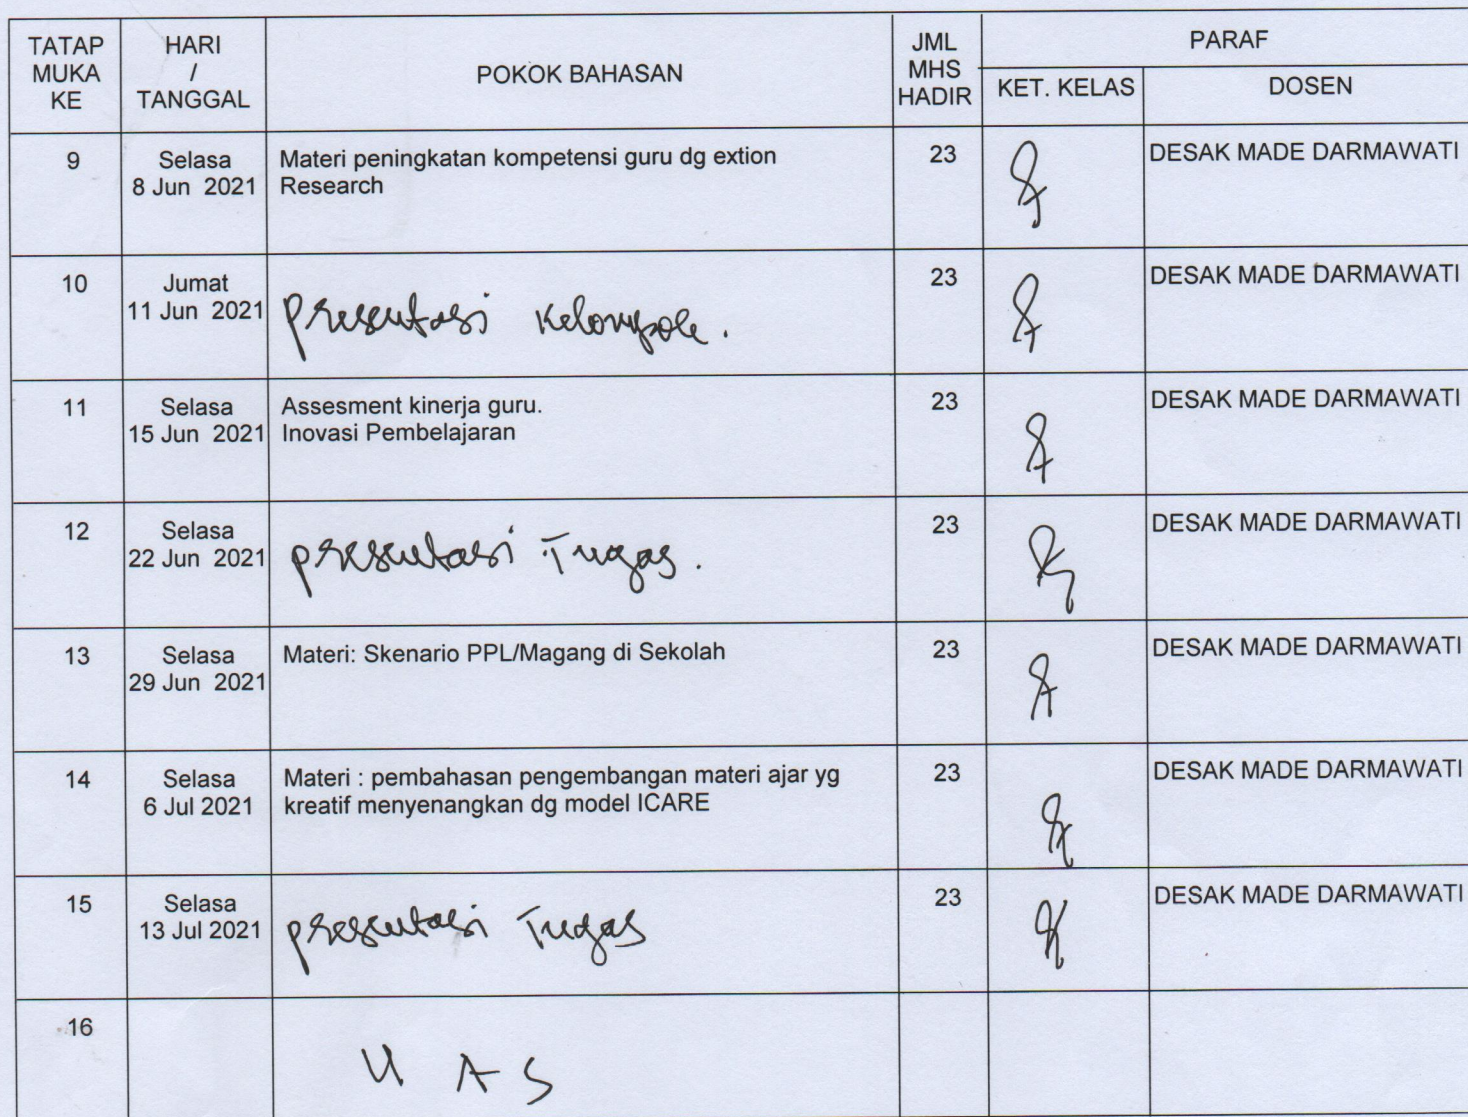 TATAP MUKA KE | HARI / TANGGAL | POKOK BAHASAN | JML MHS HADIR | PARAF
KET. KELAS | DOSEN
9 | Selasa 8 Jun 2021 | Materi peningkatan kompetensi guru dg extion Research | 23 | DESAK MADE DARMAWATI
10 | Jumat 11 Jun 2021 | presentasi Kelompok. | 23 | DESAK MADE DARMAWATI
11 | Selasa 15 Jun 2021 | Assesment kinerja guru. Inovasi Pembelajaran | 23 | DESAK MADE DARMAWATI
12 | Selasa 22 Jun 2021 | presentasi Tugas. | 23 | DESAK MADE DARMAWATI
13 | Selasa 29 Jun 2021 | Materi: Skenario PPL/Magang di Sekolah | 23 | DESAK MADE DARMAWATI
14 | Selasa 6 Jul 2021 | Materi : pembahasan pengembangan materi ajar yg kreatif menyenangkan dg model ICARE | 23 | DESAK MADE DARMAWATI
15 | Selasa 13 Jul 2021 | presentasi Tugas | 23 | DESAK MADE DARMAWATI
16 | U A S